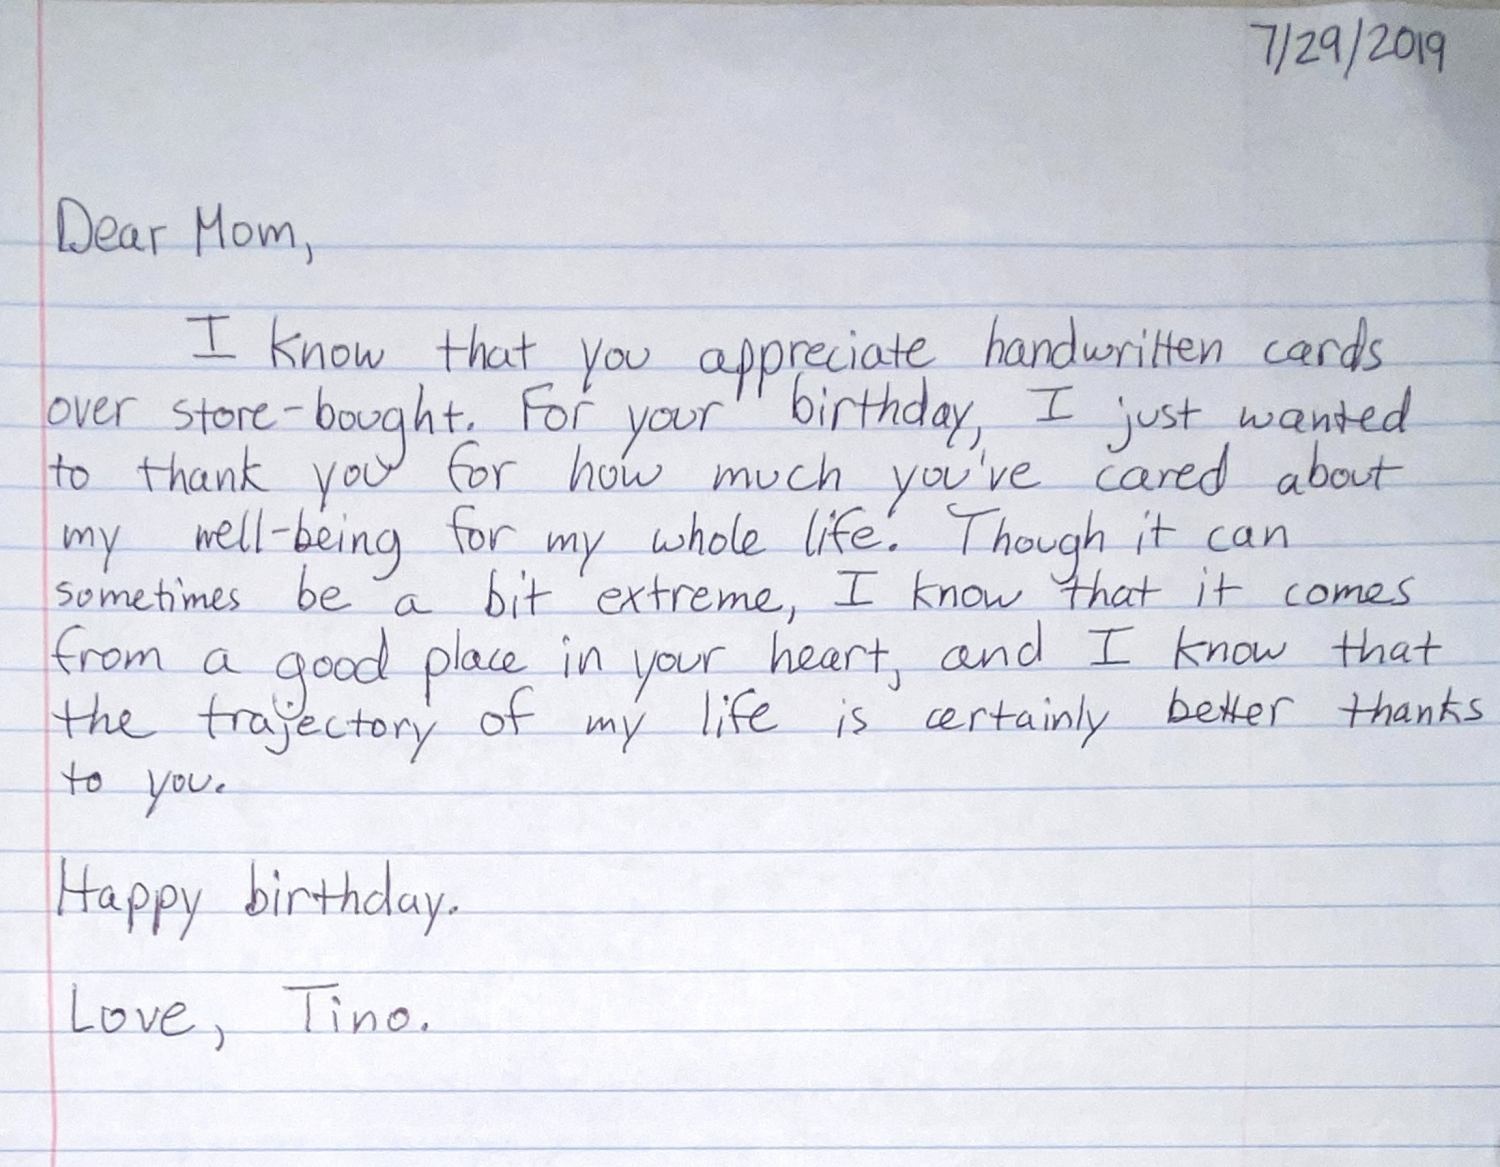 7/29/2019
Dear Mom,
I know that you appreciate handwritten cards
over store-bought. For your birthday, I just wanted
to thank you for how much you've cared about
my well-being for my whole life. Though it can
sometimes be a bit extreme, I know that it comes
from a good place in your heart, and I know that
the trajectory of my life is certainly better thanks
to you.
Happy birthday.
Love, Tino.